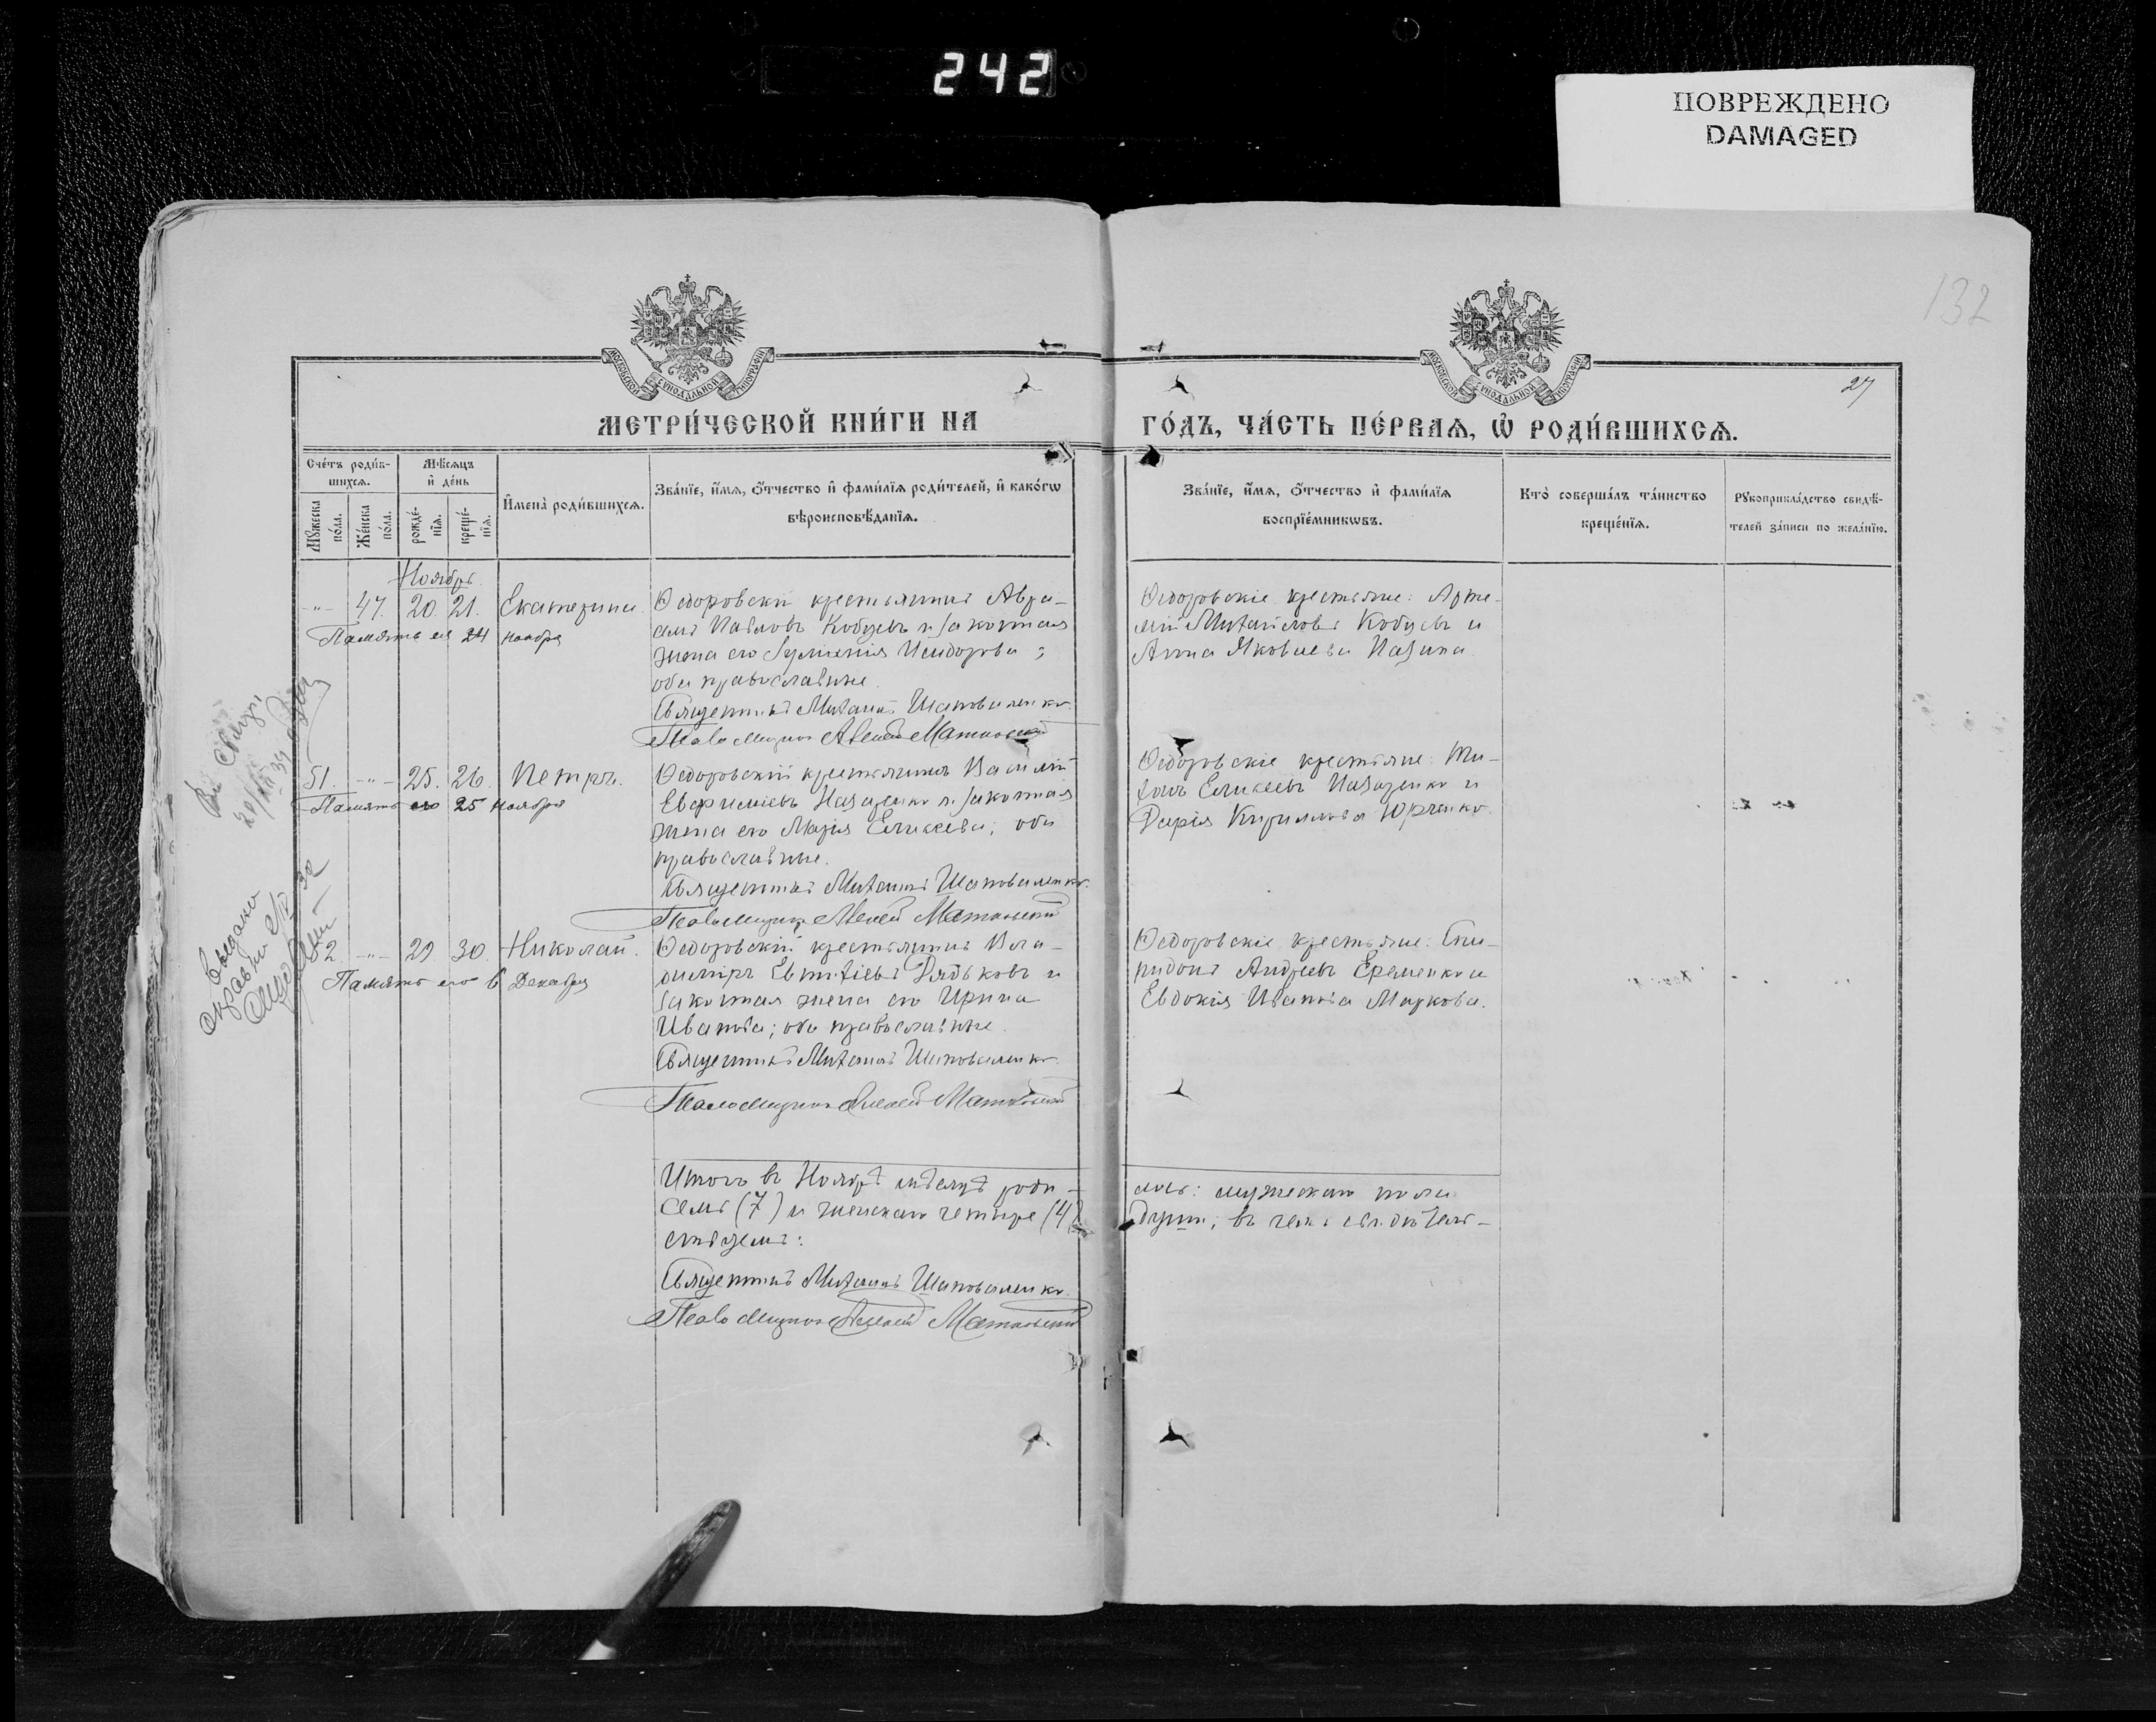 242
ПОВРЕЖДЕНО
DAMAGED
132
МОСКОВСКОЙ СѴНОДАЛЬНОЙ ТИПОГРАФІИ
МОСКОВСКОЙ СѴНОДАЛЬНОЙ ТИПОГРАФІИ
27
МЕТРИ́ЧЕСКОЙ КНИ́ГИ НА
ГО́ДЪ, ЧА́СТЬ ПЕ́РВАЯ, Ѡ҆ РОДИ́ВШИХСЯ.
Сче́тъ роди́в-
шихся.
Мꙋ́жеска
по́ла.
Же́нска
по́ла.
Мѣ́сяцъ
и҆ де́нь
рожде́-
нїя.
креще́-
нїя.
И҆мена̀ роди́вшихся.
Зва́нїе, и҆́мя, ѻ҆́тчество и҆ фами́лїя роди́телей, и҆ како́гѡ
вѣроисповѣ́данїя.
Зва́нїе, и҆́мя, ѻ҆́тчество и҆ фами́лїя
воспрїе́мникѡвъ.
Кто̀ соверша́лъ та́инство
креще́нїя.
Рꙋкоприкла́дство свидѣ́-
телей за́писи по жела́нїю.
Ноябрь.
-"- 47. 20. 21. Екатерина.
Память ея 24 ноября
Ѳедоровскій крестьянинъ Авра-
амъ Павловъ Кобцевъ и законная
жена его Евгенія Исидорова;
оба православные.
Священникъ Михаилъ Шаповаленко.
Псаломщикъ Алексѣй Матковскій
Ѳедоровскіе крестьяне: Арте-
мій Михайловъ Кобцевъ и
Анна Яковлева
51. -"- 25. 26. Петръ.
Память его 25 ноября
Ѳедоровскій крестьянинъ Василій
Евфиміевъ Назаренко и законная
жена его Марія Елисеева; оба
православные.
Священникъ Михаилъ Шаповаленко.
Псаломщикъ Алексѣй Матковскій
Ѳедоровскіе крестьяне: Ти-
хонъ Елисеевъ Назаренко и
Дарія Кириллова Юрченко.
52. -"- 29. 30. Николай.
Память его 6 Декабря
Ѳедоровскій крестьянинъ Вла-
диміръ Евтихіевъ Дядьковъ и
законная жена его Ирина
Иванова; оба православные.
Священникъ Михаилъ Шаповаленко.
Псаломщикъ Алексѣй Матковскій
Ѳедоровскіе крестьяне: Спи-
ридонъ Андреевъ Еременко и
Евдокія Иванова Маркова.
Итого въ Ноябрѣ мѣсяцѣ роди-
лось: мужескаго пола
семь (7) и женскаго четыре (4)
души; въ чемъ свидѣтель-
ствуемъ:
Священникъ Михаилъ Шаповаленко.
Псаломщикъ Алексѣй Матковскій
Выдано